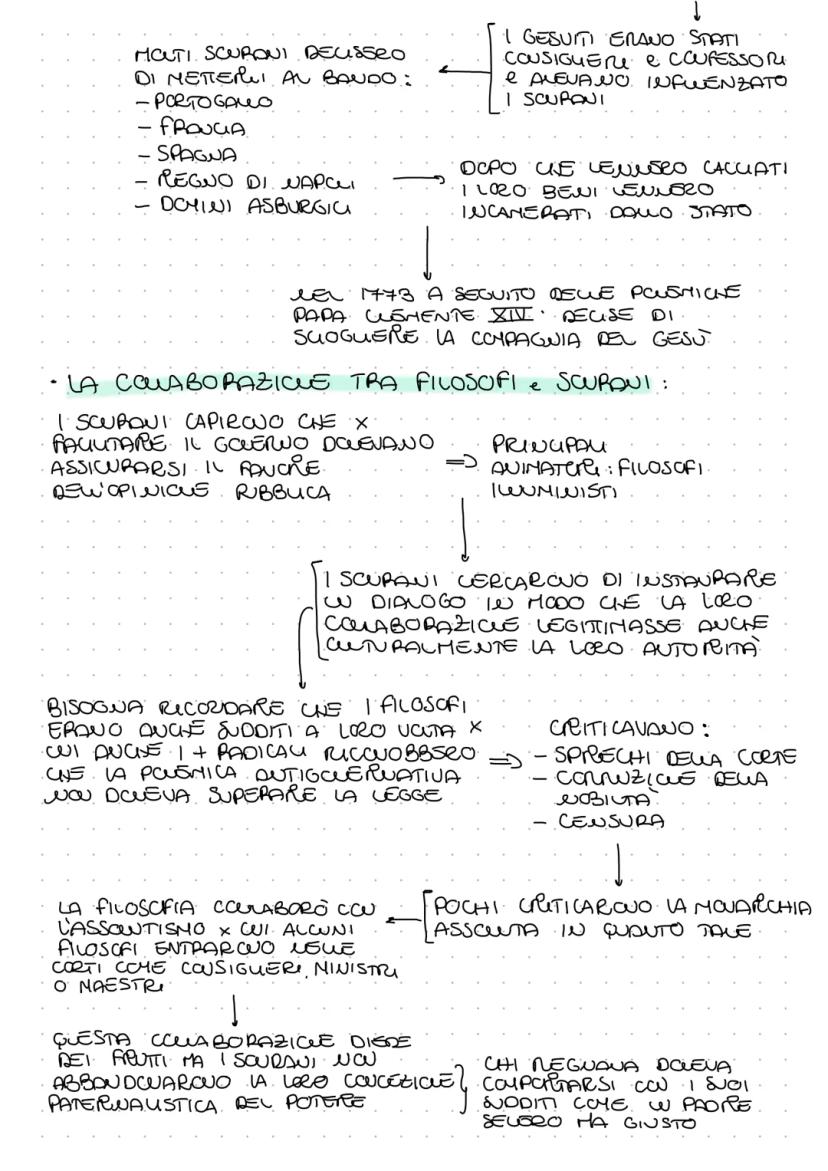 I GESUITI ERANO STATI
CONSIGLIERI e CONFESSORI
e AVEVANO INFLUENZATO
I SOVRANI
MOLTI SOVRANI DECISERO
DI METTERLI AL BANDO:
- PORTOGALLO
- FRANCIA
- SPAGNA
- REGNO DI NAPOLI
- DOMINI ASBURGICI
DOPO CHE VENNERO CACCIATI
I LORO BENI VENNERO
INCAMERATI DALLO STATO
NEL 1773 A SEGUITO DELLE POLEMICHE
PAPA CLEMENTE XIV DECISE DI
SCIOGLIERE LA COMPAGNIA DEL GESÙ
• LA COLLABORAZIONE TRA FILOSOFI e SOVRANI:
I SOVRANI CAPIRONO CHE x
FACILITARE IL GOVERNO DOVEVANO
ASSICURARSI IL FAVORE
DELL'OPINIONE PUBBLICA
PRINCIPALI
ANIMATORI: FILOSOFI
ILLUMINISTI
I SOVRANI CERCARONO DI INSTAURARE
UN DIALOGO IN MODO CHE LA LORO
COLLABORAZIONE LEGITTIMASSE ANCHE
CULTURALMENTE LA LORO AUTORITÀ
BISOGNA RICORDARE CHE I FILOSOFI
ERANO ANCHE SUDDITI A LORO VOLTA x
CUI ANCHE I + RADICALI RICONOBBERO
CHE LA POLEMICA ANTIGOVERNATIVA
NON DOVEVA SUPERARE LA LEGGE
CRITICAVANO:
- SPRECHI DELLA CORTE
- CORRUZIONE DELLA
NOBILTÀ
- CENSURA
POCHI CRITICARONO LA MONARCHIA
ASSOLUTA IN QUANTO TALE
LA FILOSOFIA COLLABORÒ CON
L'ASSOLUTISMO x CUI ALCUNI
FILOSOFI ENTRARONO NELLE
CORTI COME CONSIGLIERI, MINISTRI
O MAESTRI
QUESTA COLLABORAZIONE DIEDE
DEI FRUTTI MA I SOVRANI NON
ABBANDONARONO LA LORO CONCEZIONE
PATERNALISTICA DEL POTERE
CHI REGNAVA DOVEVA
COMPORTARSI CON I SUOI
SUDDITI COME UN PADRE
SEVERO MA GIUSTO